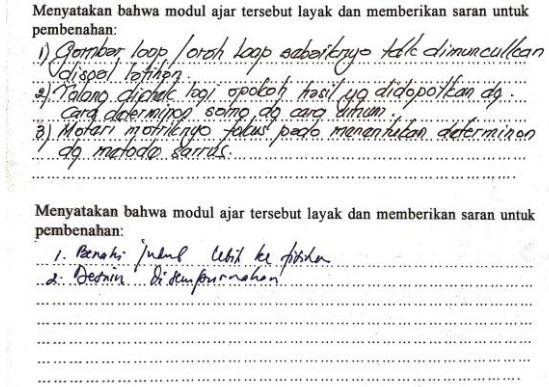 Menyatakan bahwa modul ajar tersebut layak dan memberikan saran untuk
pembenahan:
1) Gambar loop / arah loop sebaiknya tdk dimunculkan
disoal latihan.
2) Tolong dicheck lagi apakah hasil yg didapatkan dg.
cara determinan sama dg cara umum.
3) Materi matriknya fokus pada menentukan determinan
dg metode sarrus.
Menyatakan bahwa modul ajar tersebut layak dan memberikan saran untuk
pembenahan:
1. Benahi judul lebih ke fisika
2. Desain disempurnakan